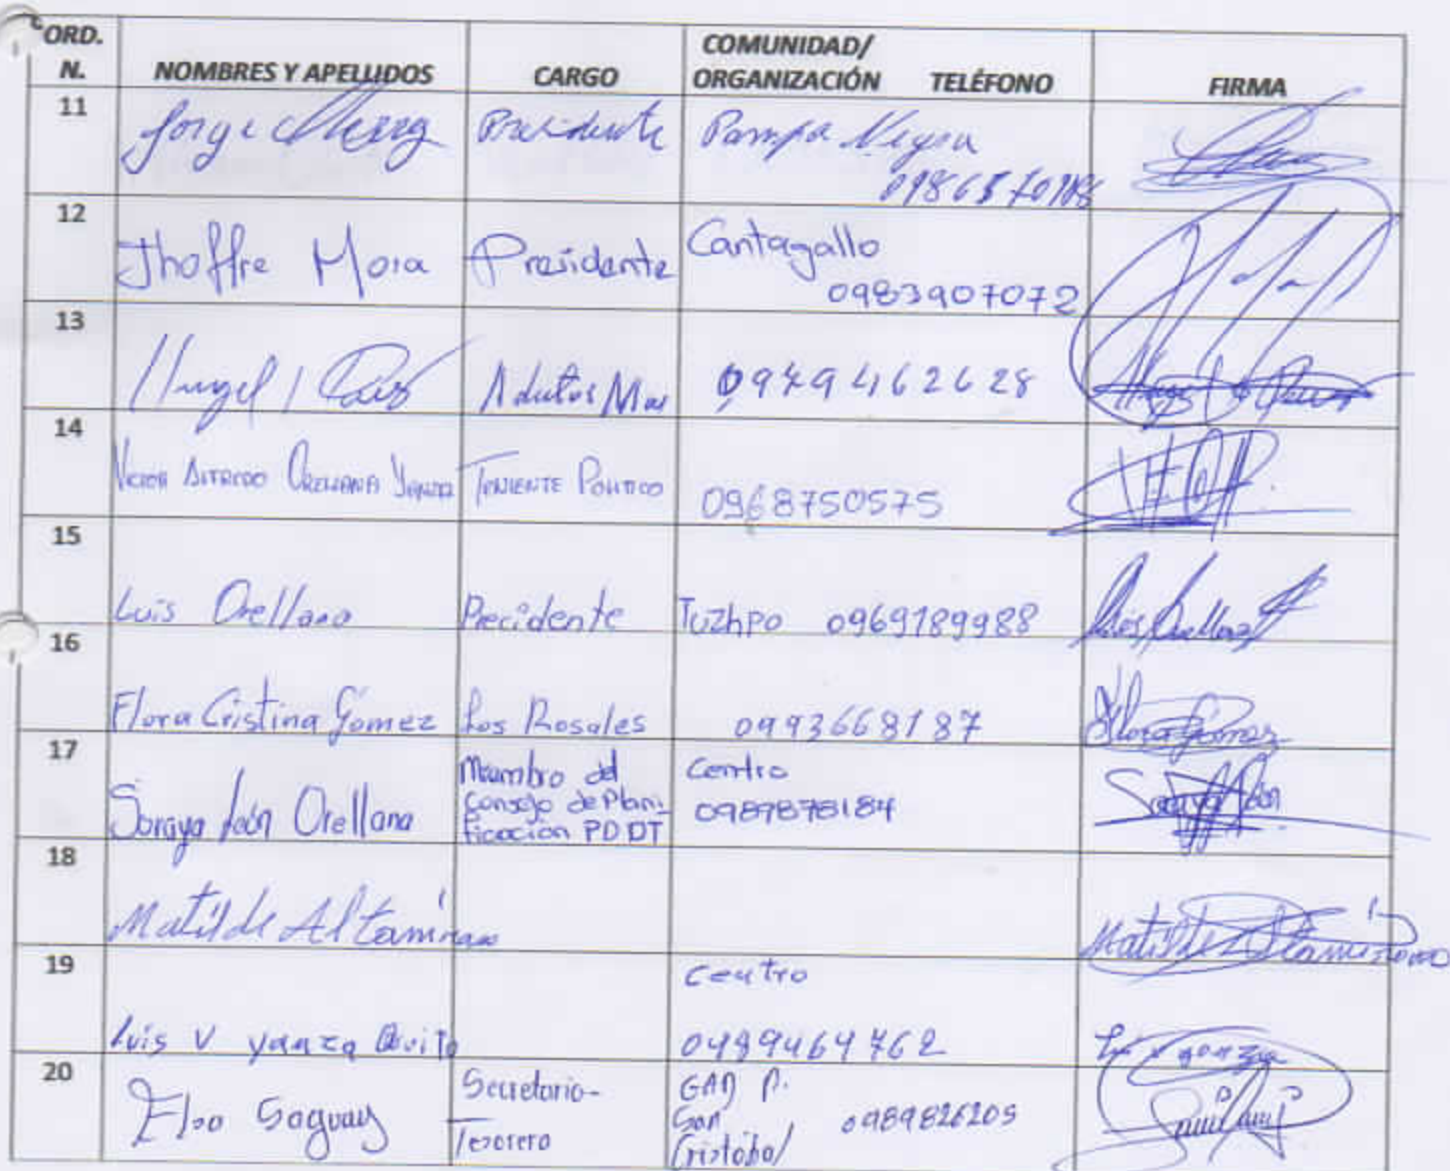 ORD. N. NOMBRES Y APELLIDOS CARGO COMUNIDAD/ ORGANIZACIÓN TELÉFONO FIRMA
11 Jorge Presidente Pampa Negra
12 Jhoffre Mora Presidente Cantagallo 0983907072
13 Adultos May
14 Orellana Teniente Politico 0968750575
15 Luis Orellana Precidente Tuzhpo 0969789988 Luis Orellana
16 Flora Cristina Gómez Los Rosales 0993668187 Flora Gomez
17 Soraya León Orellana Miembro del Consejo de Planificacion PDDT Centro 0989878184 Soraya León
18 Matilde Altamirano Matilde Altamirano
19 Luis V yanza Quito Centro
20 Saguay Secretario- Tesorero GAD P. San Cristobal 0989826205